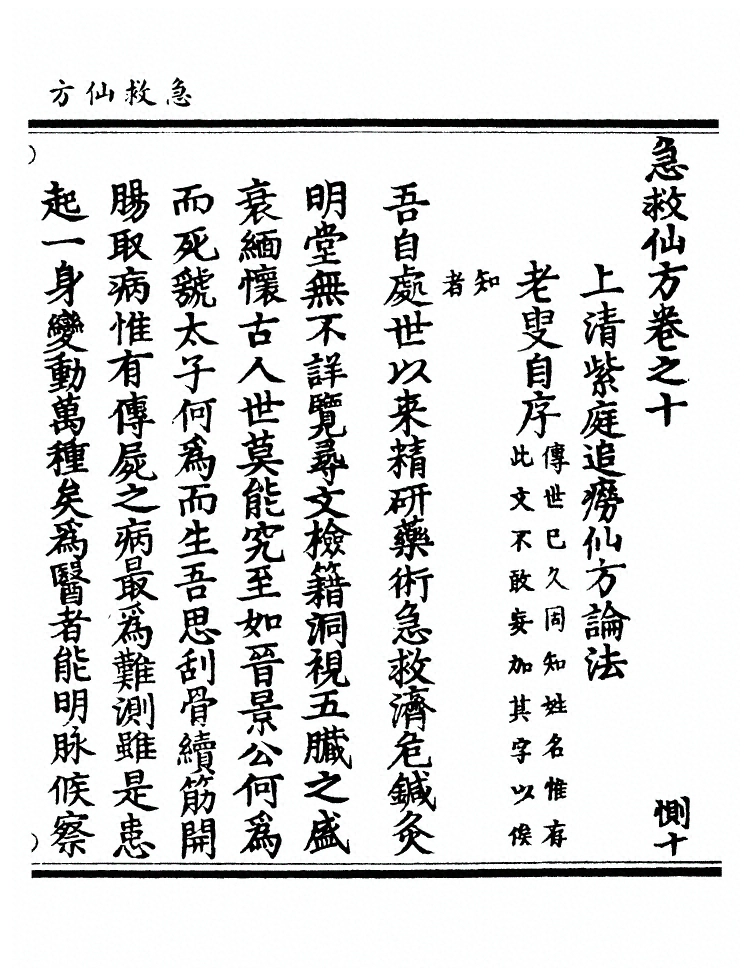 急救仙方
急救仙方卷之十
惻十
上清紫庭追癆仙方論法
老叟自序
傳世已久固知姓名惟存
此文不敢妄加其字以俟
知
者
吾自處世以来精研藥術急救濟危鍼灸
明堂無不詳覽尋文檢籍洞視五臟之盛
衰緬懷古人世莫能究至如晉景公何爲
而死虢太子何爲而生吾思刮骨續筋開
腸取病惟有傳屍之病最爲難測雖是患
起一身變動萬種矣爲醫者能明脉候察